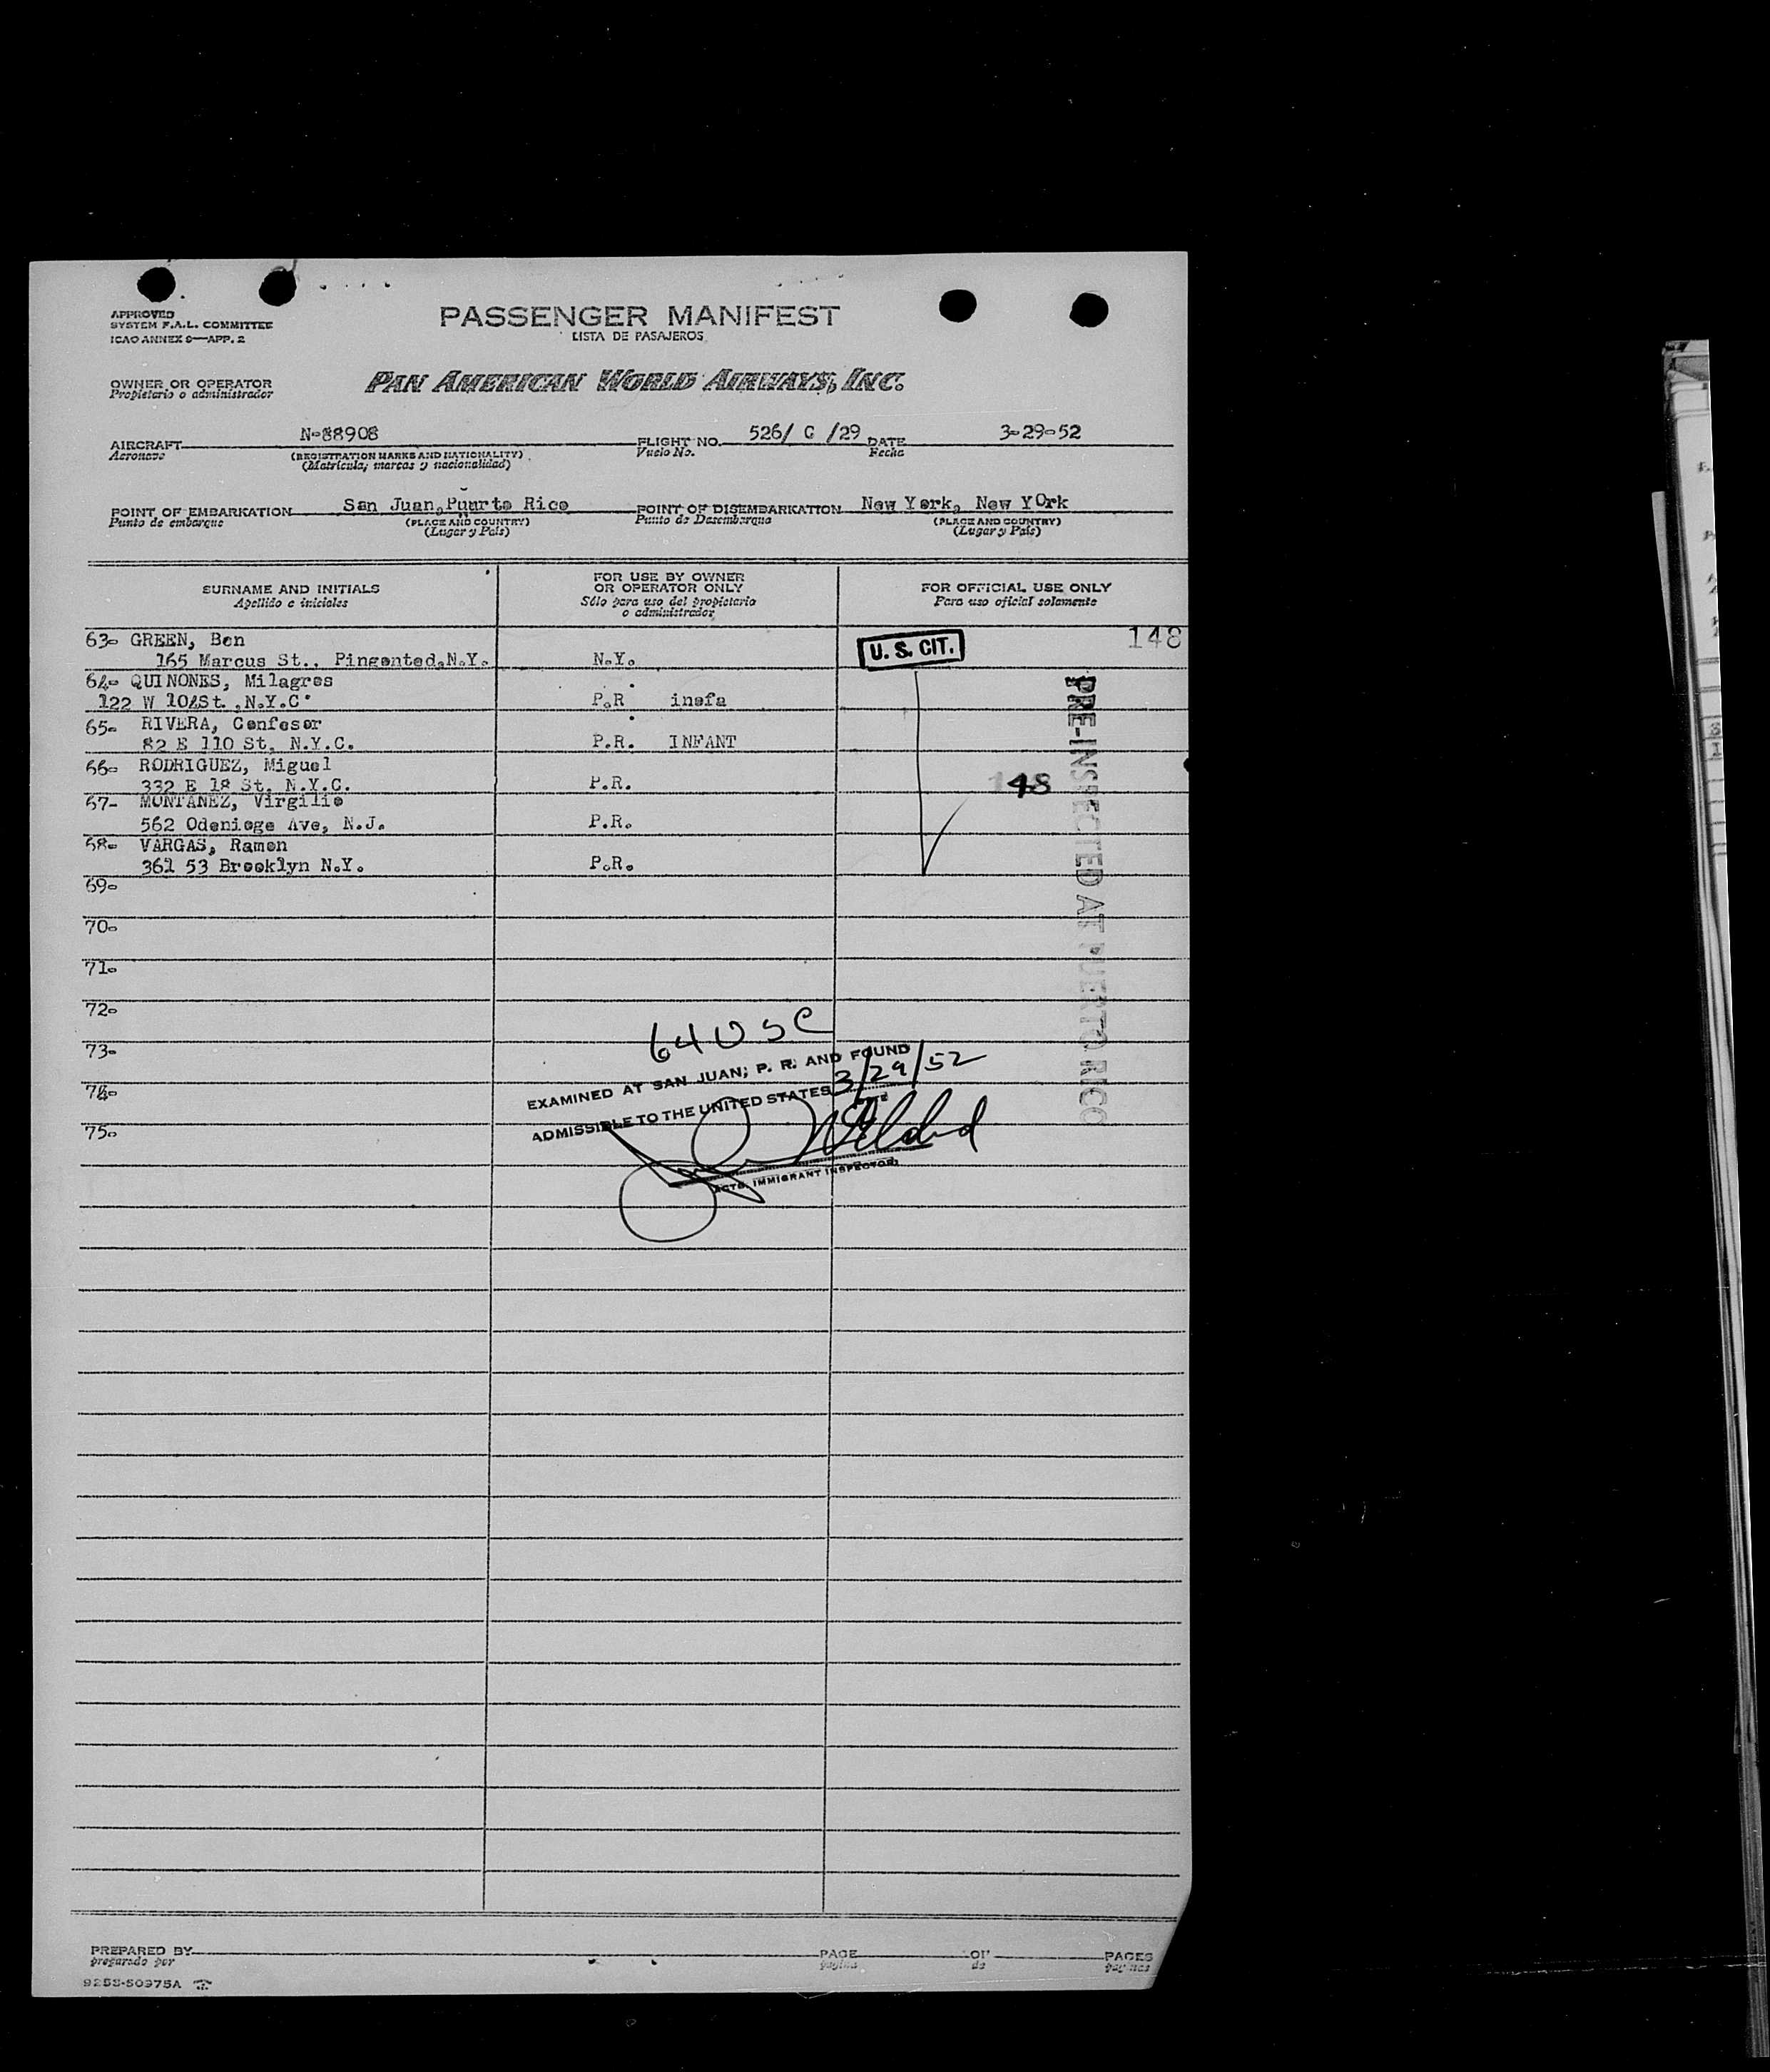 APPROVED
SYSTEM F.A.L. COMMITTEE
ICAO ANNEX 9—APP. 2
PASSENGER MANIFEST
LISTA DE PASAJEROS
OWNER OR OPERATOR
Propietario o administrador
PAN AMERICAN WORLD AIRWAYS, INC.
AIRCRAFT N-88908 FLIGHT NO. 526/ C /29 DATE 3-29-52
Aeronave (REGISTRATION MARKS AND NATIONALITY) Vuelo No. Fecha
(Matrícula, marcas y nacionalidad)
POINT OF EMBARKATION San Juan,Puurto Rico POINT OF DISEMBARKATION New York, New YOrk
Punto de embarque (PLACE AND COUNTRY) Punto de Desembarque (PLACE AND COUNTRY)
(Lugar y País) (Lugar y País)
SURNAME AND INITIALS FOR USE BY OWNER OR OPERATOR ONLY FOR OFFICIAL USE ONLY
Apellido e iniciales Sólo para uso del propietario o administrador Para uso oficial solamente
63- GREEN, Ben 148
165 Marcus St., Pingented,N.Y. N.Y. U. S. CIT.
64- QUINONES, Milagros
122 W 104St. ,N.Y.C. P.R inefa
65- RIVERA, Confesor
82 E 110 St, N.Y.C. P.R. INFANT
66- RODRIGUEZ, Miguel
332 E 18 St. N.Y.C. P.R. 148
67- MONTANEZ, Virgilio
562 Odeniege Ave, N.J. P.R.
68- VARGAS, Ramon
361 53 Brooklyn N.Y. P.R.
PRE-INSPECTED AT PUERTO RICO
69-
70-
71-
72-
64 U S C
73-
EXAMINED AT SAN JUAN, P. R. AND FOUND
74-
ADMISSIBLE TO THE UNITED STATES 3/29/52
DATE
75-
ACTG. IMMIGRANT INSPECTOR
PREPARED BY PAGE OF PAGES
preparado por página de páginas
9253-50975A